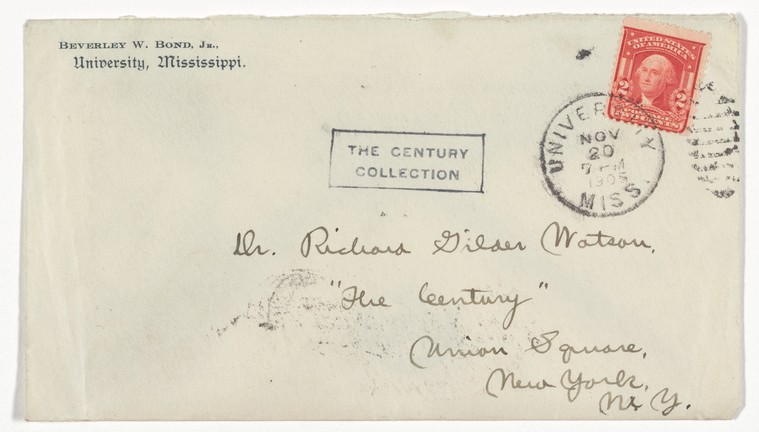 BEVERLEY W. BOND, JR.,
University, Mississippi.
UNITED STATES
OF AMERICA
2 2
THE CENTURY
COLLECTION
UNIVERSITY
NOV
20
7 PM
1905
MISS.
Dr. Richard Gilder Watson,
"The Century"
Union Square,
New York,
N. Y.